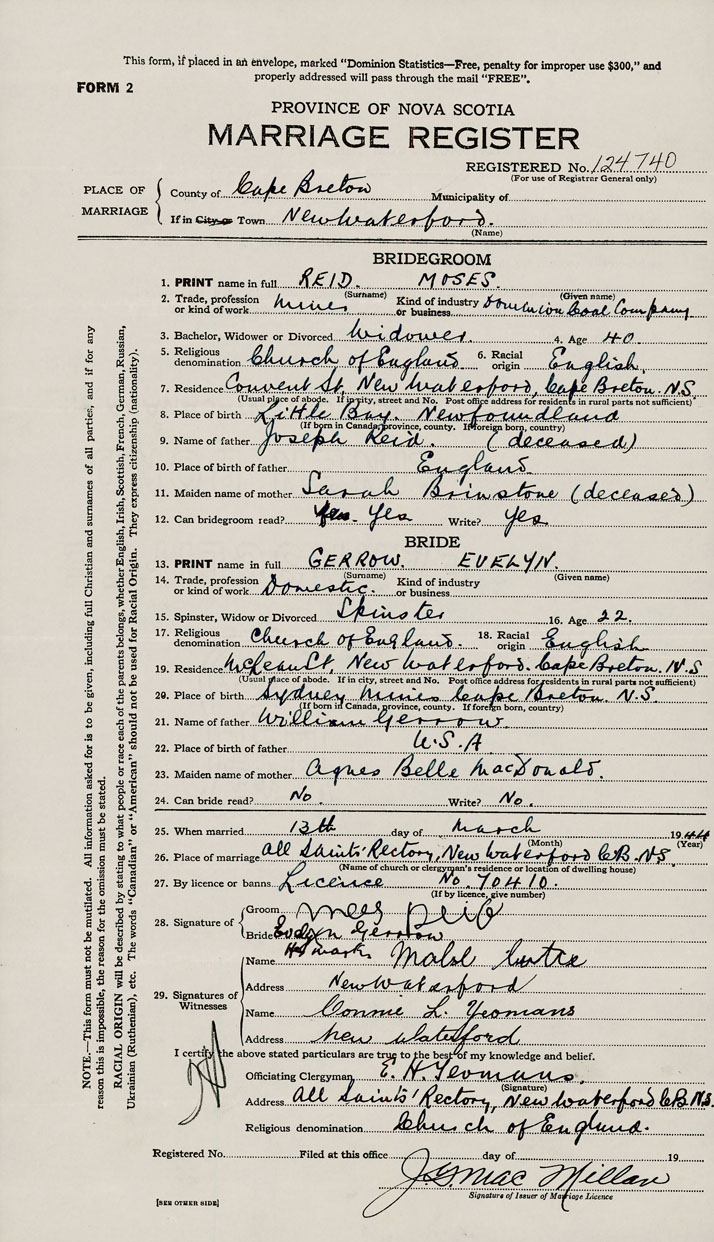 This form, if placed in an envelope, marked "Dominion Statistics—Free, penalty for improper use $300," and
properly addressed will pass through the mail "FREE".
FORM 2
PROVINCE OF NOVA SCOTIA
MARRIAGE REGISTER
REGISTERED No. 124740
(For use of Registrar General only)
PLACE OF MARRIAGE
County of Cape Breton Municipality of
If in City or Town New Waterford.
(Name)
BRIDEGROOM
1. PRINT name in full REID. MOSES.
(Surname) (Given name)
2. Trade, profession or kind of work Miner Kind of industry or business Dominion Coal Company
3. Bachelor, Widower or Divorced Widower. 4. Age 40.
5. Religious denomination Church of England 6. Racial origin English.
7. Residence Convent St. New Waterford, Cape Breton. N.S.
(Usual place of abode. If in city, street and No. Post office address for residents in rural parts not sufficient)
8. Place of birth Little Bay. Newfoundland
(If born in Canada, province, county. If foreign born, country)
9. Name of father Joseph Reid. (deceased)
10. Place of birth of father England.
11. Maiden name of mother Sarah Brinstone (deceased)
12. Can bridegroom read? Yes Write? Yes
BRIDE
13. PRINT name in full GERROW. EVELYN.
(Surname) (Given name)
14. Trade, profession or kind of work Domestic. Kind of industry or business
15. Spinster, Widow or Divorced Spinster 16. Age 22.
17. Religious denomination Church of England. 18. Racial origin English
19. Residence McLean St, New Waterford. Cape Breton. N.S
(Usual place of abode. If in city, street and No. Post office address for residents in rural parts not sufficient)
20. Place of birth Sydney Mines Cape Breton. N.S.
(If born in Canada, province, county. If foreign born, country)
21. Name of father William Gerrow.
22. Place of birth of father U.S.A
23. Maiden name of mother Agnes Belle MacDonald.
24. Can bride read? No. Write? No.
25. When married 13th day of March 1944
(Month) (Year)
26. Place of marriage All Saints' Rectory, New Waterford C.B. N.S.
(Name of church or clergyman's residence or location of dwelling house)
27. By licence or banns Licence No. 70410.
(If by licence, give number)
28. Signature of
Groom
Bride Evelyn Gerrow
mark
29. Signatures of Witnesses
Name Mabel
Address New Waterford
Name Connie L. Yeomans
Address New Waterford
I certify the above stated particulars are true to the best of my knowledge and belief.
Officiating Clergyman E. H. Yeomans.
(Signature)
Address All Saints' Rectory, New Waterford C.B. N.S.
Religious denomination Church of England.
Registered No. Filed at this office day of 19
J. G. MacMillan
Signature of Issuer of Marriage Licence
[SEE OTHER SIDE]
NOTE.—This form must not be mutilated. All information asked for is to be given, including full Christian and surnames of all parties, and if for any
reason this is impossible, the reason for the omission must be stated.
RACIAL ORIGIN will be described by stating to what people or race each of the parents belongs, whether English, Irish, Scottish, French, German, Russian,
Ukrainian (Ruthenian), etc. The words "Canadian" or "American" should not be used for Racial Origin. They express citizenship (nationality).